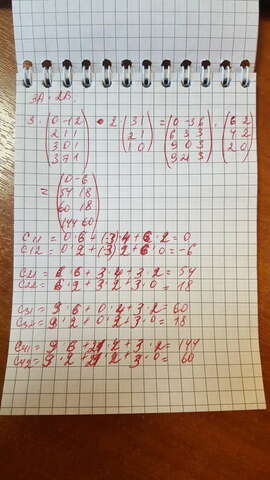 3A · 2B.
3 · (0 -1 2) · 2 (3 1) = (0 -3 6) · (6 2)
2 1 1 2 1 6 3 3 4 2
3 0 1 1 0 9 0 3 2 0
3 7 1 9 21 3
= (0 -6)
54 18
60 18
144 60
C11 = 0·6+(-3)·4+6·2=0
C12 = 0·2+(-3)2+6·0=-6
C21 = 6·6+3·4+3·2=54
C22 = 6·2+3·2+3·0=18
C31 = 9·6+0·4+3·2=60
C32 = 9·2+0·2+3·0=18
C41 = 9·6+21·2+3·2=144
C42 = 9·2+21·2+3·0=60